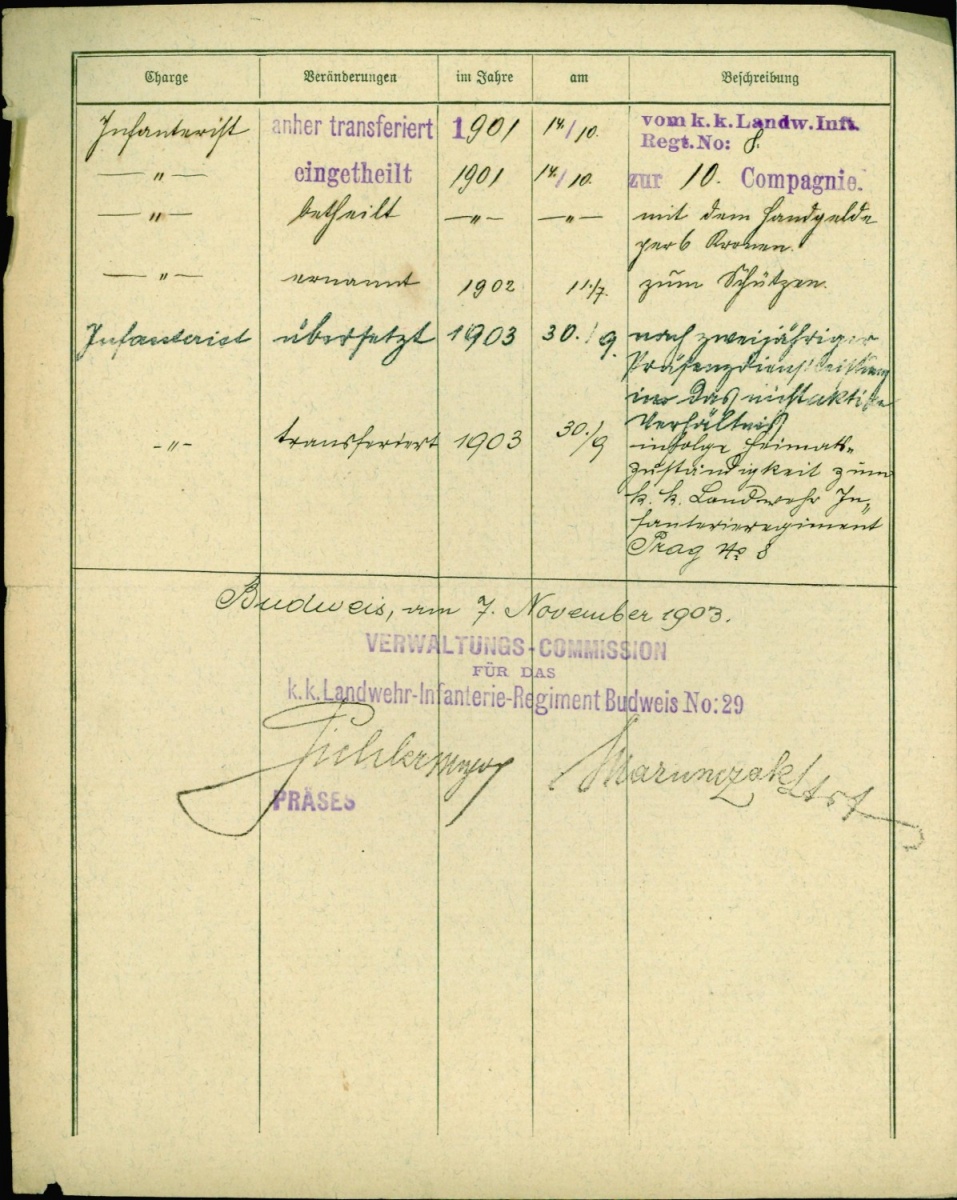 Charge Veränderungen im Jahre am Beschreibung
Infanterist anher transferiert 1901 14./10. vom k.k. Landw. Inft.
Regt. No: 8.
— " — eingetheilt 1901 14./10. zur 10. Compagnie.
— " — betheilt — " — — " — mit dem Handgelde
per 6 Kronen.
— " — ernannt 1902 11./7. zum Schützen.
Infanterist übersetzt 1903 30./9. nach zweijähriger
Präsenzdienstleistung
in das nichtaktive
Verhältnis
- " - transferiert 1903 30./9 infolge Heimats-
zuständigkeit zum
k. k. Landwehr In-
fanterieregiment
Prag No 8
Budweis, am 7. November 1903.
VERWALTUNGS-COMMISSION
FÜR DAS
k.k. Landwehr-Infanterie-Regiment Budweis No: 29
PRÄSES